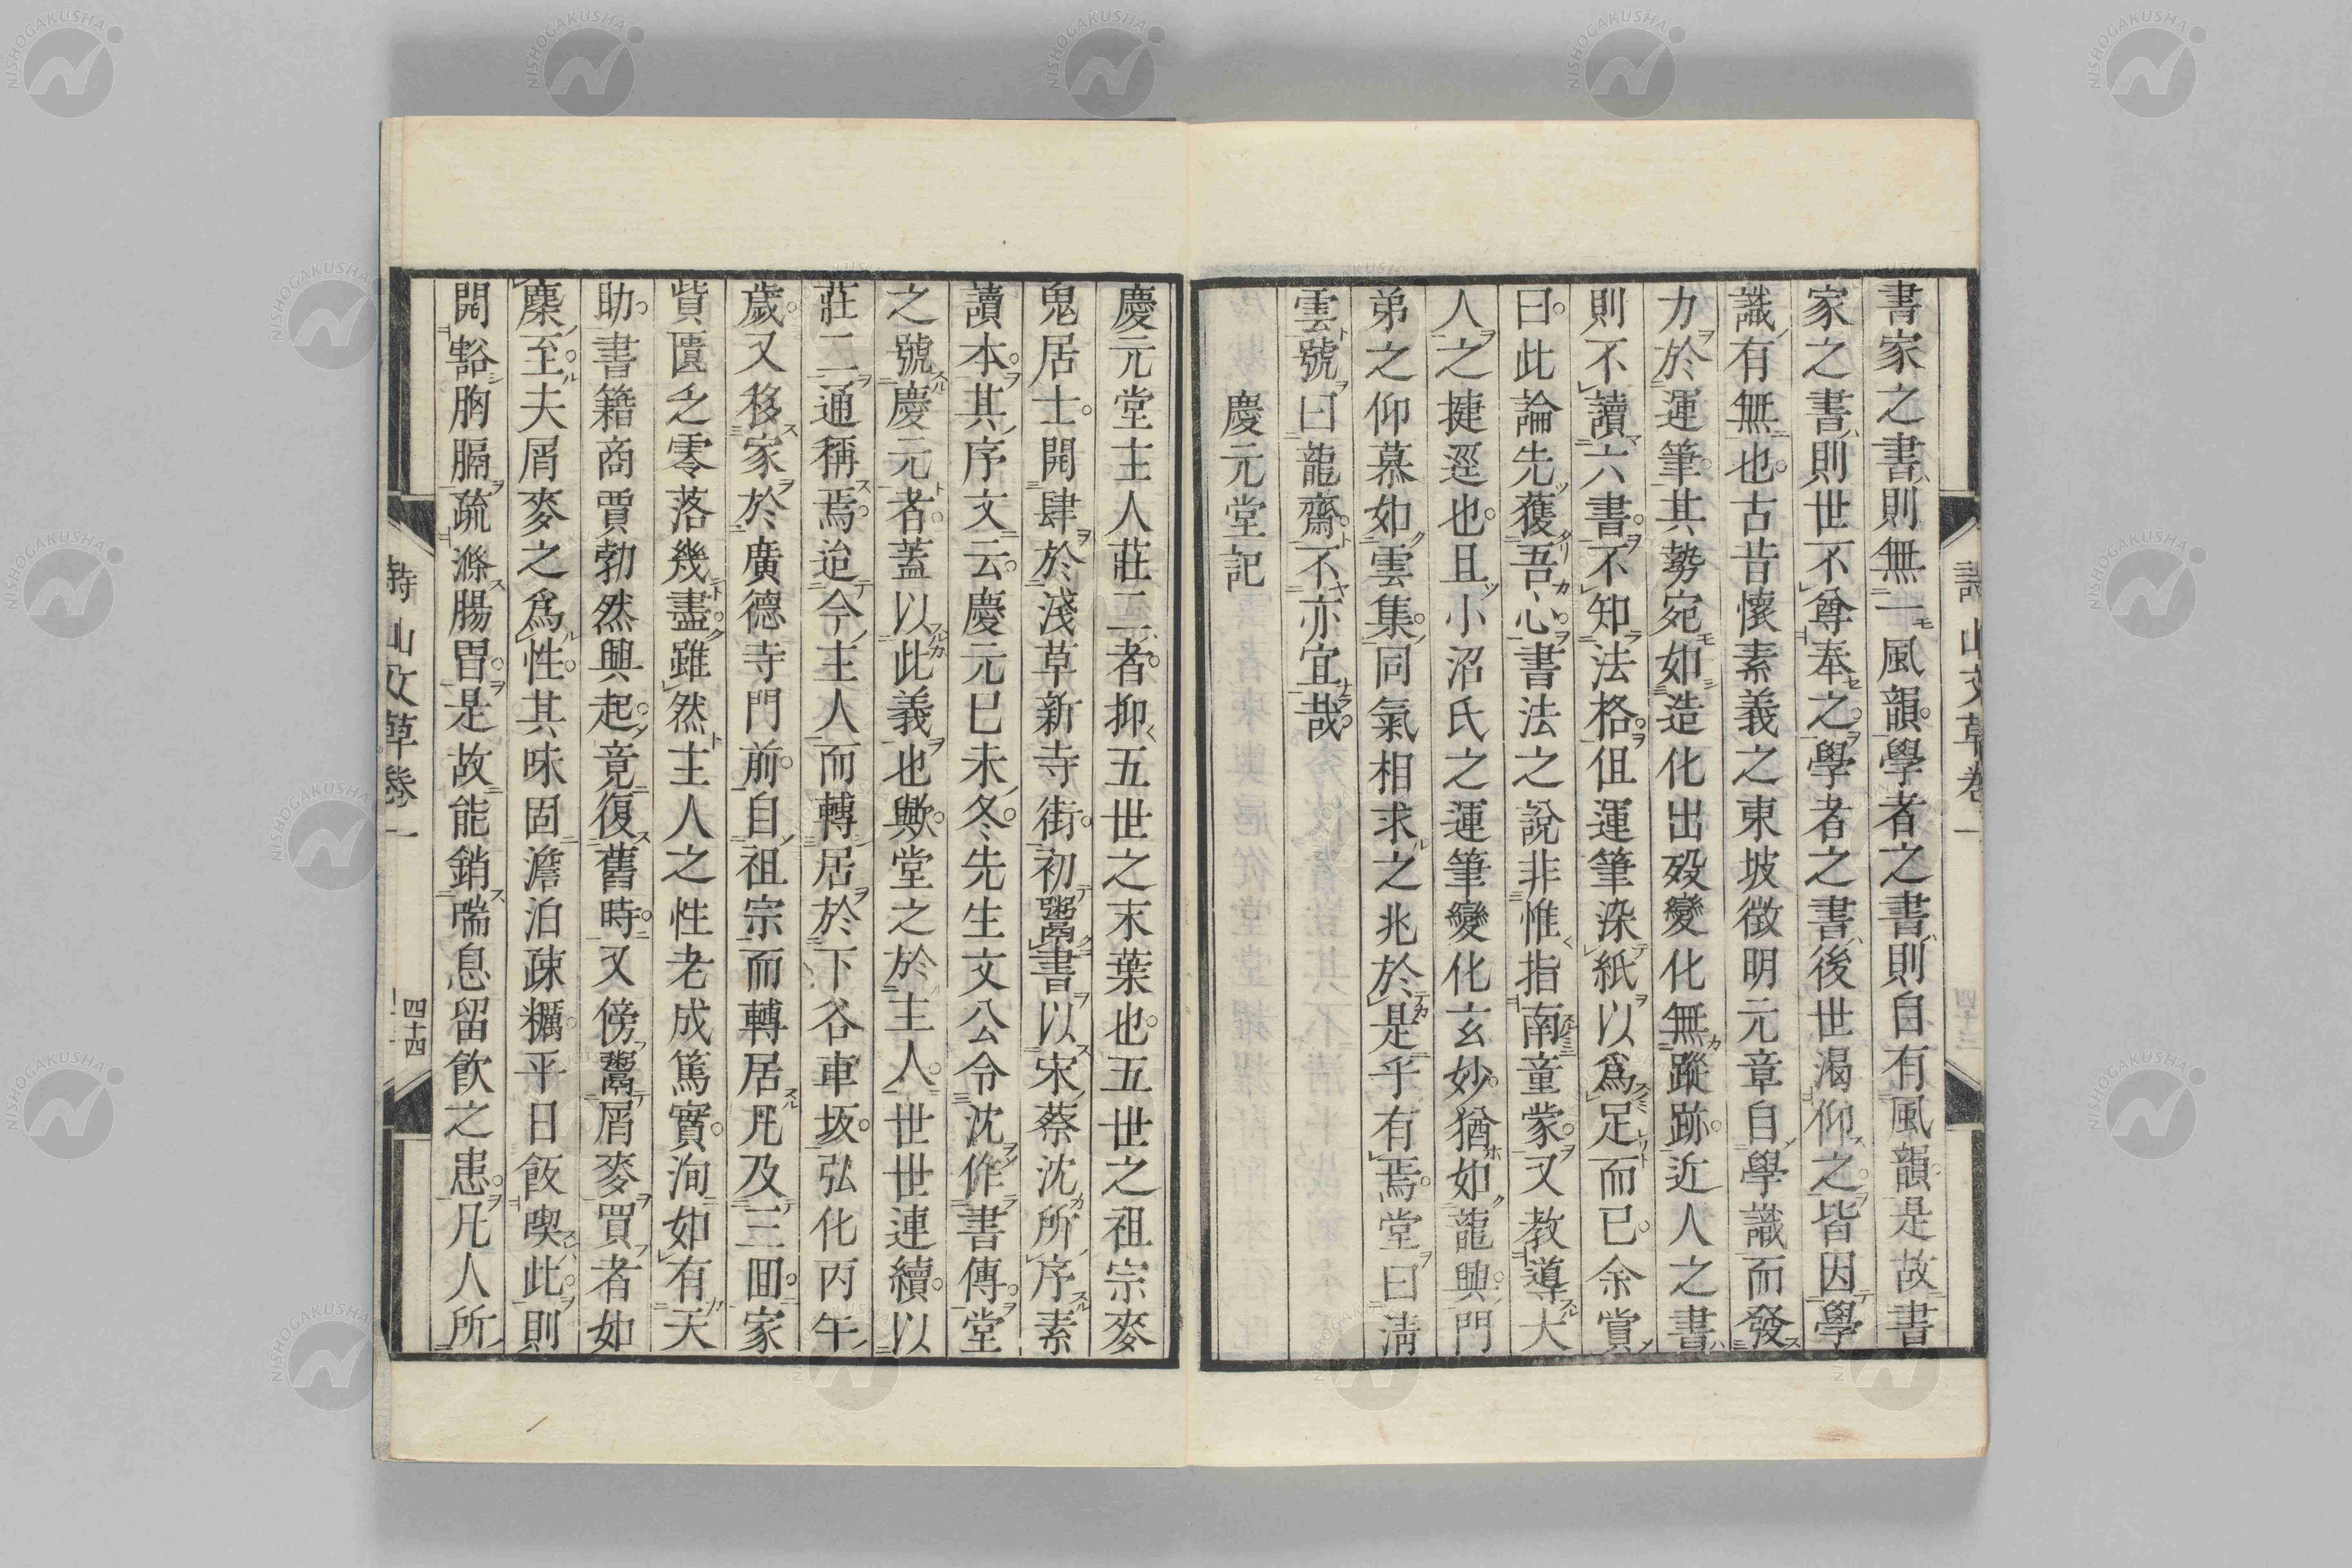 書家之書則無一風韻學者之書則自有風韻是故書
家之書則世不尊奉之學者之書後世渴仰之皆因學
識有無也古昔懷素義之東坡徴明元章自學識而發
力於運筆其勢宛如造化出殁變化無蹤跡近人之書
則不讀六書不知法格但運筆染紙以爲足而已余嘗
曰此論先獲吾心書法之説非惟指南童蒙又教導大
人之捷逕也且小沼氏之運筆變化玄妙猶如龍興門
弟之仰慕如雲集同氣相求之兆於是乎有焉堂曰淸
雲號曰龍齋不亦宜哉
慶元堂記
慶元堂主人莊二者抑五世之末葉也五世之祖宗麥
鬼居士開肆於淺草新寺街初鬻書以宋蔡沈所序素
讀本其序文云慶元已未冬先生文公令沈作書傳堂
之號慶元者蓋以此義也歟堂之於主人世世連續以
莊二通稱焉迨今主人而轉居於下谷車坂弘化丙午
歲又移家於廣德寺門前自祖宗而轉居凡及三囬家
貲匱乏零落幾盡雖然主人之性老成篤實洵如有天
助書籍商賈勃然興起竟復舊時又傍鬻屑麥買者如
麇至夫屑麥之爲性其味固澹泊疎糲平日飯喫此則
開豁胸膈疏滌腸胃是故能銷喘息留飮之患凡人所
詩山文草卷一
四十四